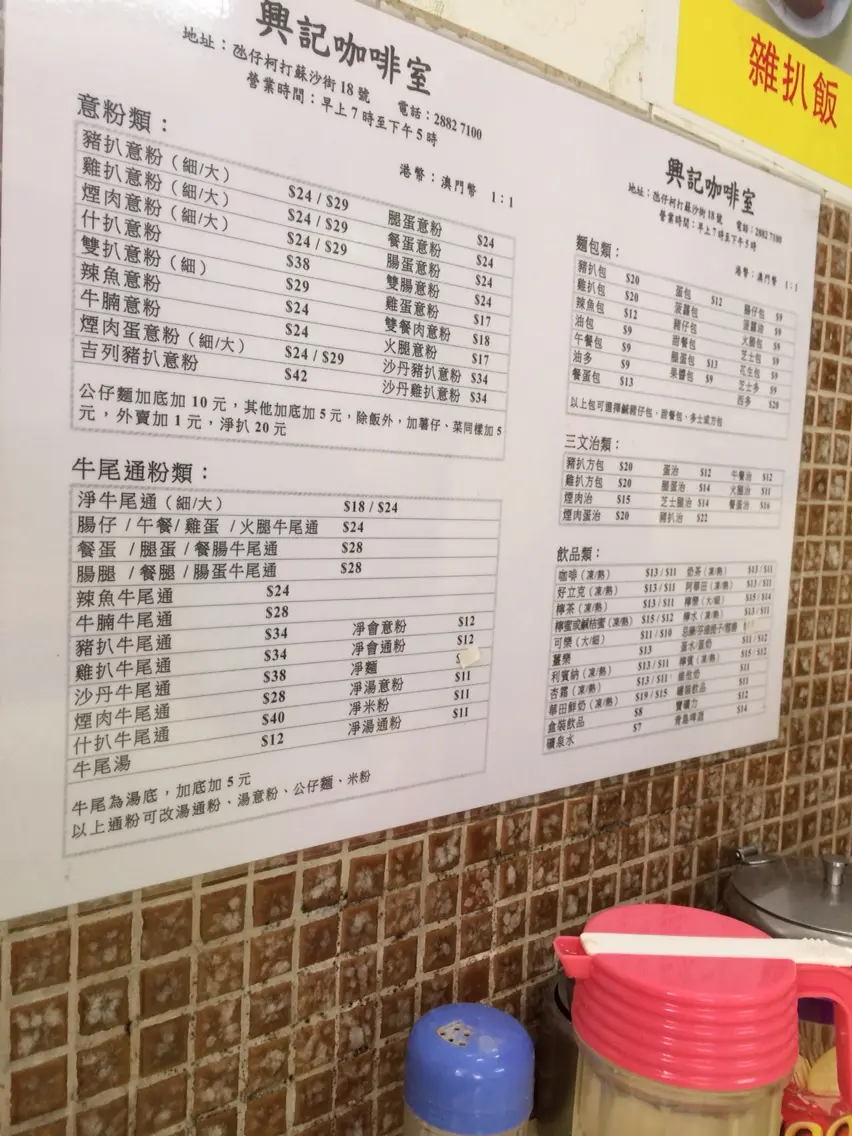 興記咖啡室
地址：氹仔柯打蘇沙街 18 號 電話：2882 7100
營業時間：早上 7 時至下午 5 時
港幣：澳門幣 1：1
意粉類：
豬扒意粉（細/大） $24 / $29 腿蛋意粉 $24
雞扒意粉（細/大） $24 / $29 餐蛋意粉 $24
煙肉意粉（細/大） $24 / $29 腸蛋意粉 $24
什扒意粉 $38 雙腸意粉 $24
雙扒意粉（細） $29 雞蛋意粉 $17
辣魚意粉 $24 雙餐肉意粉 $18
牛腩意粉 $24 火腿意粉 $17
煙肉蛋意粉（細/大） $24 / $29 沙丹豬扒意粉 $34
吉列豬扒意粉 $42 沙丹雞扒意粉 $34
公仔麵加底加 10 元，其他加底加 5 元，除飯外，加薯仔、菜同樣加 5
元，外賣加 1 元，淨扒 20 元
牛尾通粉類：
淨牛尾通（細/大） $18 / $24
腸仔 / 午餐/ 雞蛋 / 火腿牛尾通 $24
餐蛋 / 腿蛋 / 餐腸牛尾通 $28
腸腿 / 餐腿 / 腸蛋牛尾通 $28
辣魚牛尾通 $24
牛腩牛尾通 $28
豬扒牛尾通 $34 凈會意粉 $12
雞扒牛尾通 $34 凈會通粉 $12
沙丹牛尾通 $38 凈麵
煙肉牛尾通 $28 凈湯意粉 $11
什扒牛尾通 $40 凈米粉 $11
牛尾湯 $12 凈湯通粉 $11
牛尾為湯底，加底加 5 元
以上通粉可改湯通粉、湯意粉、公仔麵、米粉
雜扒飯
興記咖啡室
地址：氹仔柯打蘇沙街 18 號 電話：2882 7100
營業時間：早上 7 時至下午 5 時
港幣：澳門幣 1：1
麵包類：
豬扒包 $20 蛋包 $12 腸仔包 $9
雞扒包 $20 菠蘿包 菠蘿油 $9
辣魚包 $12 豬仔包 火腿包 $9
油包 $9 甜餐包 芝士包 $9
午餐包 $9 腿蛋包 $13 花生包 $9
油多 $9 果醬包 $9 芝士多 $9
餐蛋包 $13 西多 $20
以上包可選擇鹹豬仔包、甜餐包、多士或方包
三文治類：
豬扒方包 $20 蛋治 $12 午餐治 $12
雞扒方包 $20 腿蛋治 $14 火腿治 $11
煙肉治 $15 芝士腿治 $14 餐蛋治 $16
煙肉蛋治 $20 豬扒治 $22
飲品類：
咖啡（凍/熱） $13 / $11 奶茶（凍/熱） $13 / $11
好立克（凍/熱） $13 / $11 阿華田（凍/熱） $13 / $11
檸茶（凍/熱） $13 / $11 檸樂（大/細） $15 / $14
檸蜜或鹹桔蜜（凍/熱） $15 / $12 檸水（凍/熱） $13 / $11
可樂（大/細） $11 / $10
薑樂 $13 蛋水/蛋奶 $11 / $12
利賓納（凍/熱） $13 / $11 檸賓（凍/熱） $15 / $12
杏霜（凍/熱） $13 / $11 維他奶 $11
華田鮮奶（凍/熱） $19 / $15 罐裝飲品 $11
盒裝飲品 $8 寶礦力 $12
礦泉水 $7 青島啤酒 $14